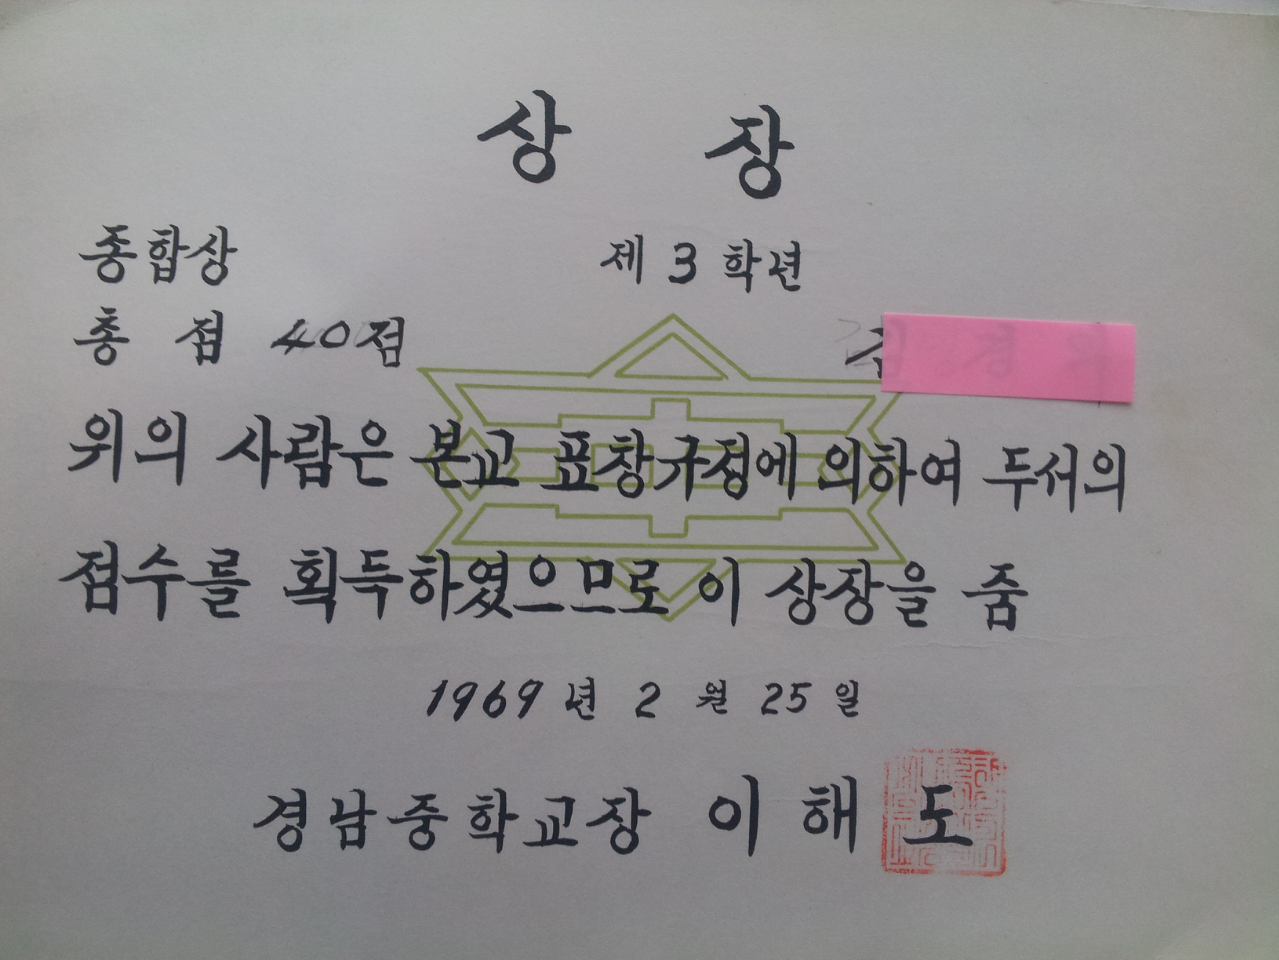 상 장
종합상
제 3 학년
총 점 40점
위의 사람은 본교 표창규정에 의하여 두서의
점수를 획득하였으므로 이 상장을 줌
1969 년 2 월 25 일
경남중학교장 이 해 도